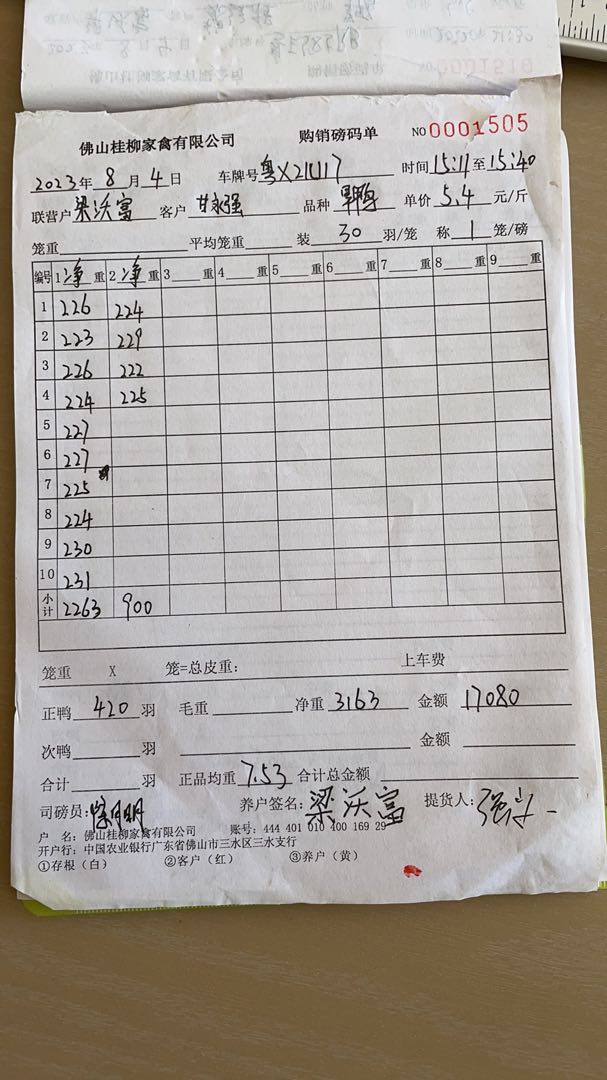 佛山桂柳家禽有限公司 购销磅码单 NO 0001505
2023年 8 月 4 日 车牌号 粤X21U17 时间 15:11 至 15:40
联营户 梁沃富 客户 甘永强 品种 单价 5.4 元/斤
笼重 平均笼重 装 30 羽/笼 称 1 笼/磅
编号 1 净 重 2 净 重 3 重 4 重 5 重 6 重 7 重 8 重 9 重
1 226 224
2 223 229
3 226 222
4 224 225
5 227
6 227
7 225
8 224
9 230
10 231
小计 2263 900
笼重 X 笼=总皮重: 上车费
正鸭 420 羽 毛重 净重 3163 金额 17080
次鸭 羽 金额
合计 羽 正品均重 7.53 合计总金额
司磅员: 养户签名: 梁沃富 提货人:
户 名: 佛山桂柳家禽有限公司 账号: 444 401 010 400 169 29
开户行: 中国农业银行广东省佛山市三水区三水支行
①存根（白） ②客户（红） ③养户（黄）